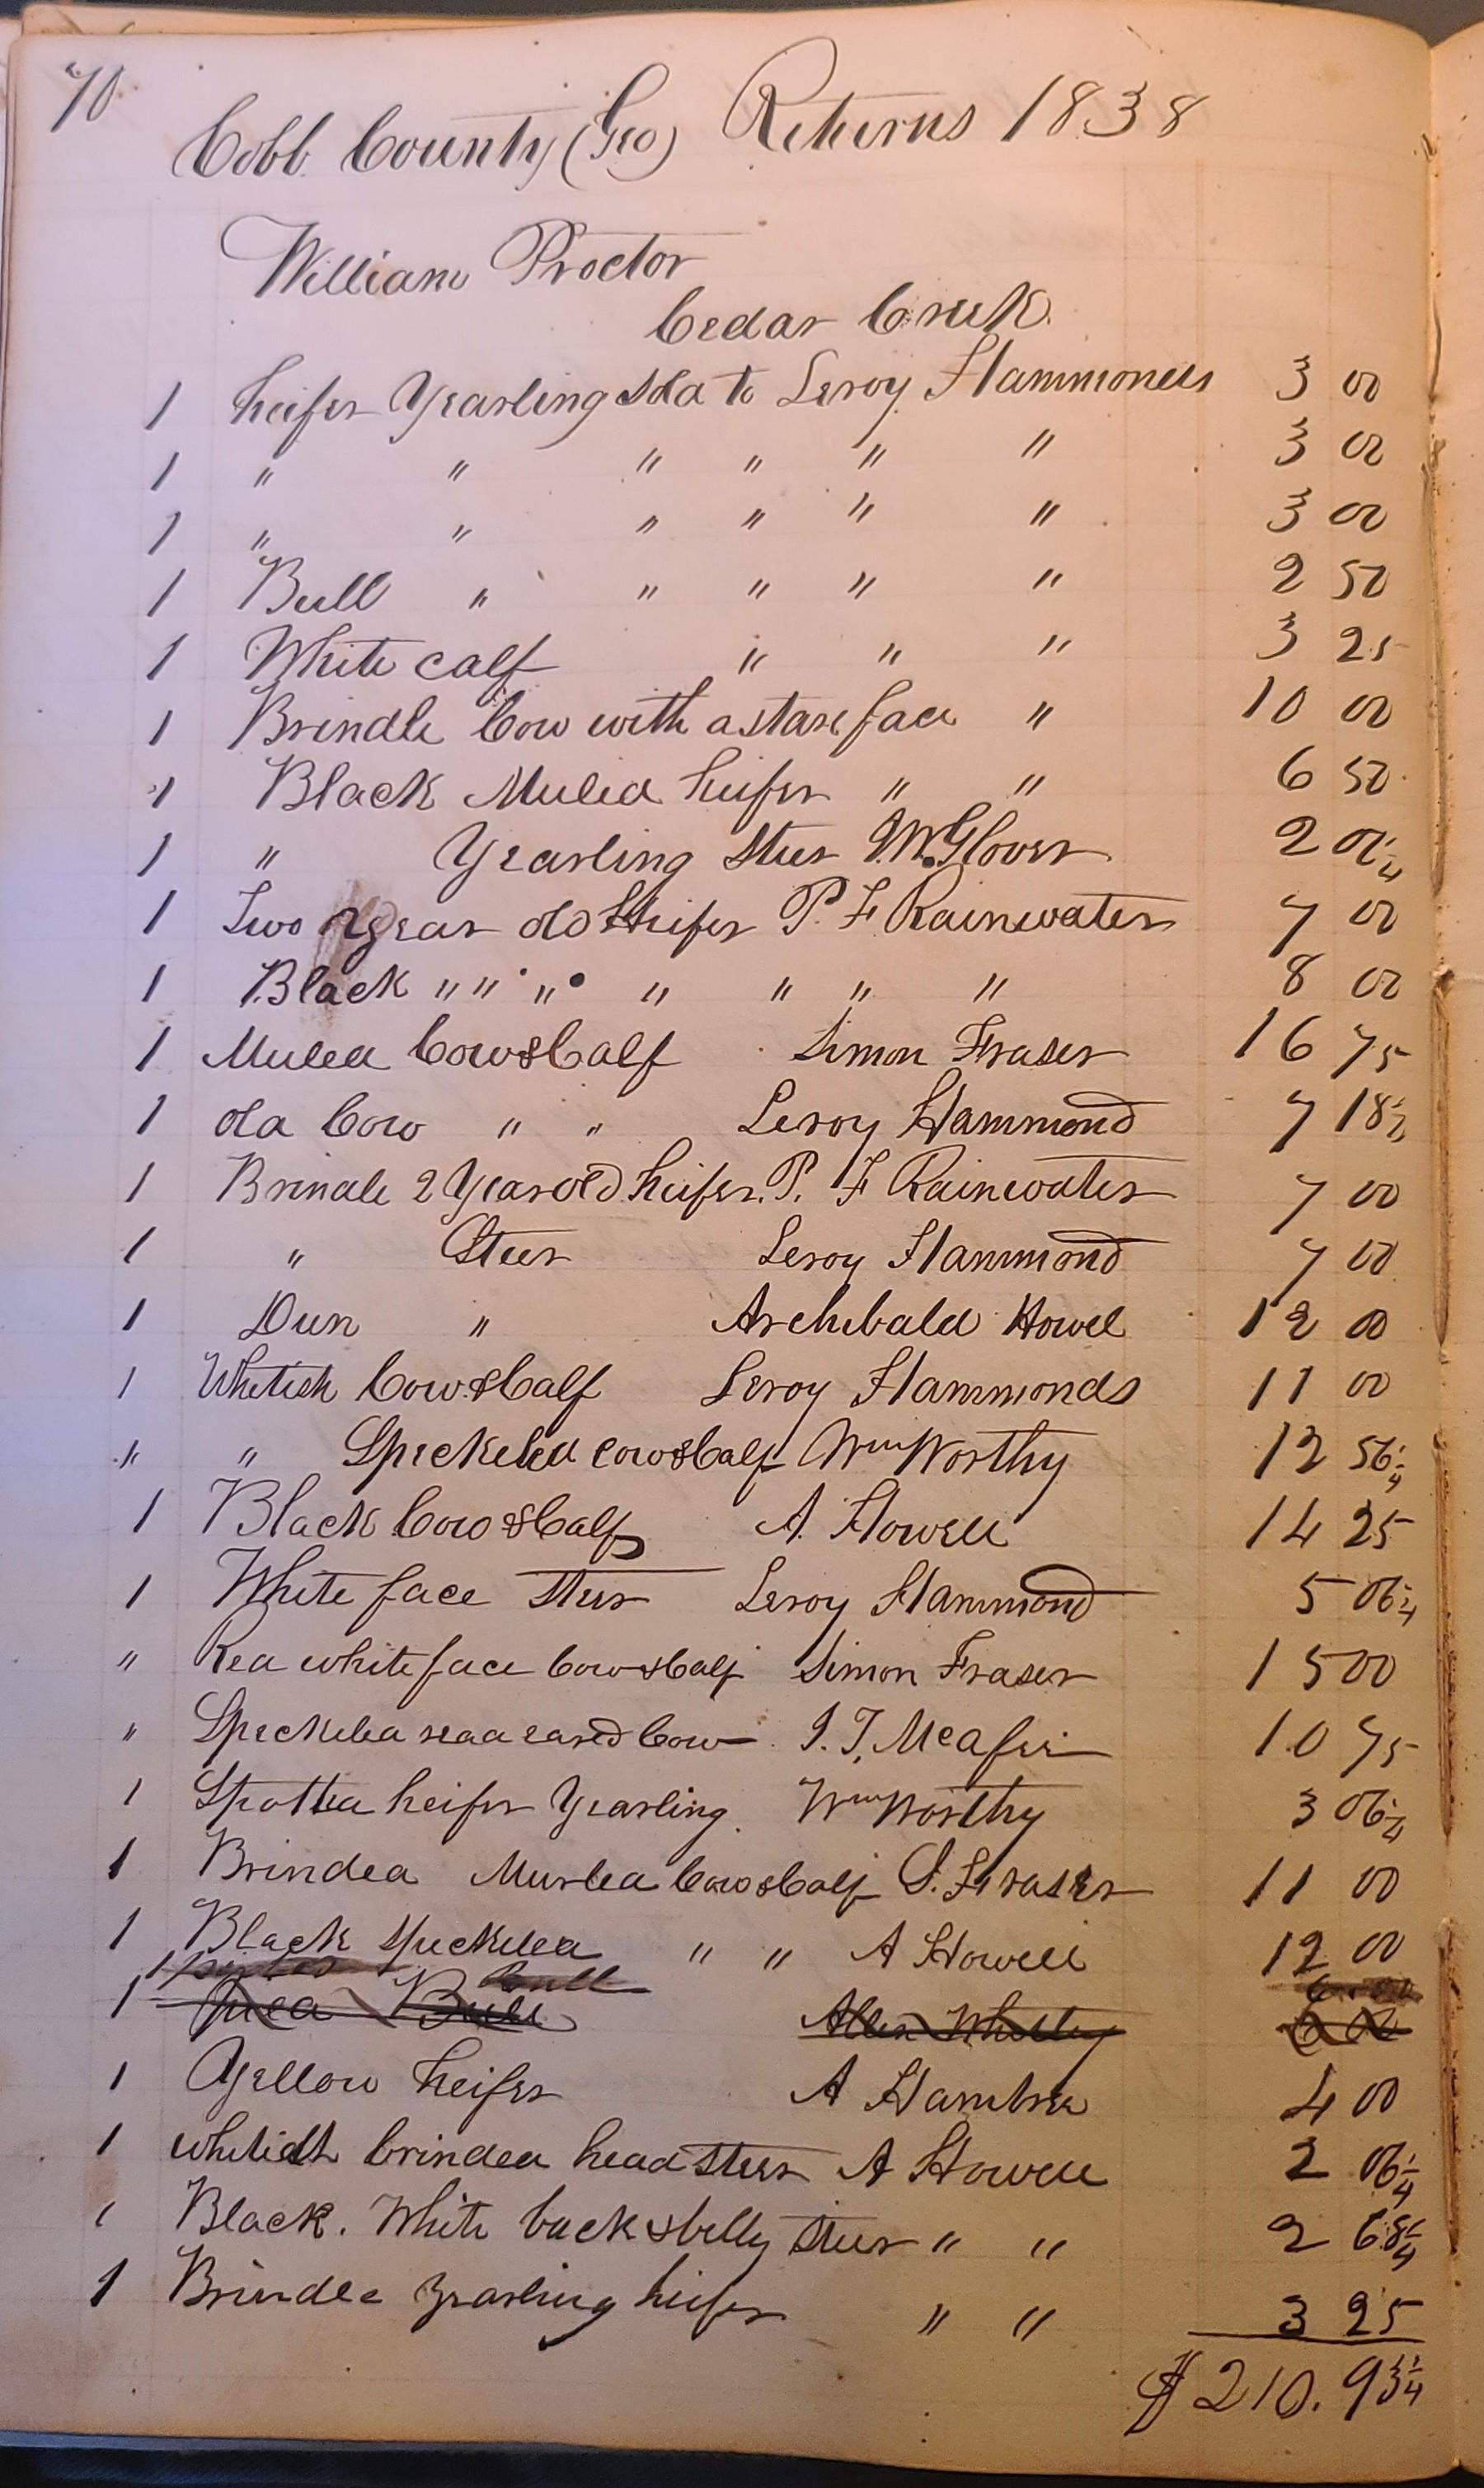 70
Cobb County (Geo) Returns 1838
William Proctor
Cedar Creek
1 heifer Yearling Sold to Leroy Hammonds 3 00
1 " " " " " " 3 00
1 " " " " " " 3 00
1 Bull " " " " " 2 50
1 White calf " " " 3 25
1 Brindle Cow with a star face " 10 00
1 Black Muled heifer " " 6 50
1 " Yearling Steer J.W. Glover 2 01/4
1 Two year old Heifer P. F Rainwater 7 00
1 Black " " " " " " " 8 00
1 Mulea Cow & Calf Simon Fraser 16 75
1 old Cow " " Leroy Hammond 7 18 1/2
1 Brindle 2 Year old heifer. P. F Rainwater 7 00
1 " Steer Leroy Hammond 7 00
1 Dun " Archibald Howel 12 00
1 Whitish Cow & Calf Leroy Hammonds 11 00
" " Speckeled cow & Calf Wm Worthy 12 56 1/4
1 Black Cow & Calf A. Howell 14 25
1 White face Steer Leroy Hammond 5 06 1/4
" Red white face Cow & Calf Simon Fraser 15 00
" Speckled read eared Cow J. T. McAfee 10 75
1 Spotted heifer Yearling. Wm Worthy 3 06 1/4
1 Brinded Murlea Cow & Calf S. Fraser 11 00
1 Black speckled " " A Howell 12 00
bull
1 Bull Allen Whitley
1 Yellow heifer A Hambree 4 00
1 whitish brinded head Steer A Howell 2 06 1/4
1 Black. White back & belly Steer " " 2 68 1/4
1 Brindle Yearling heifer " " 3 25
$ 210. 93 1/4